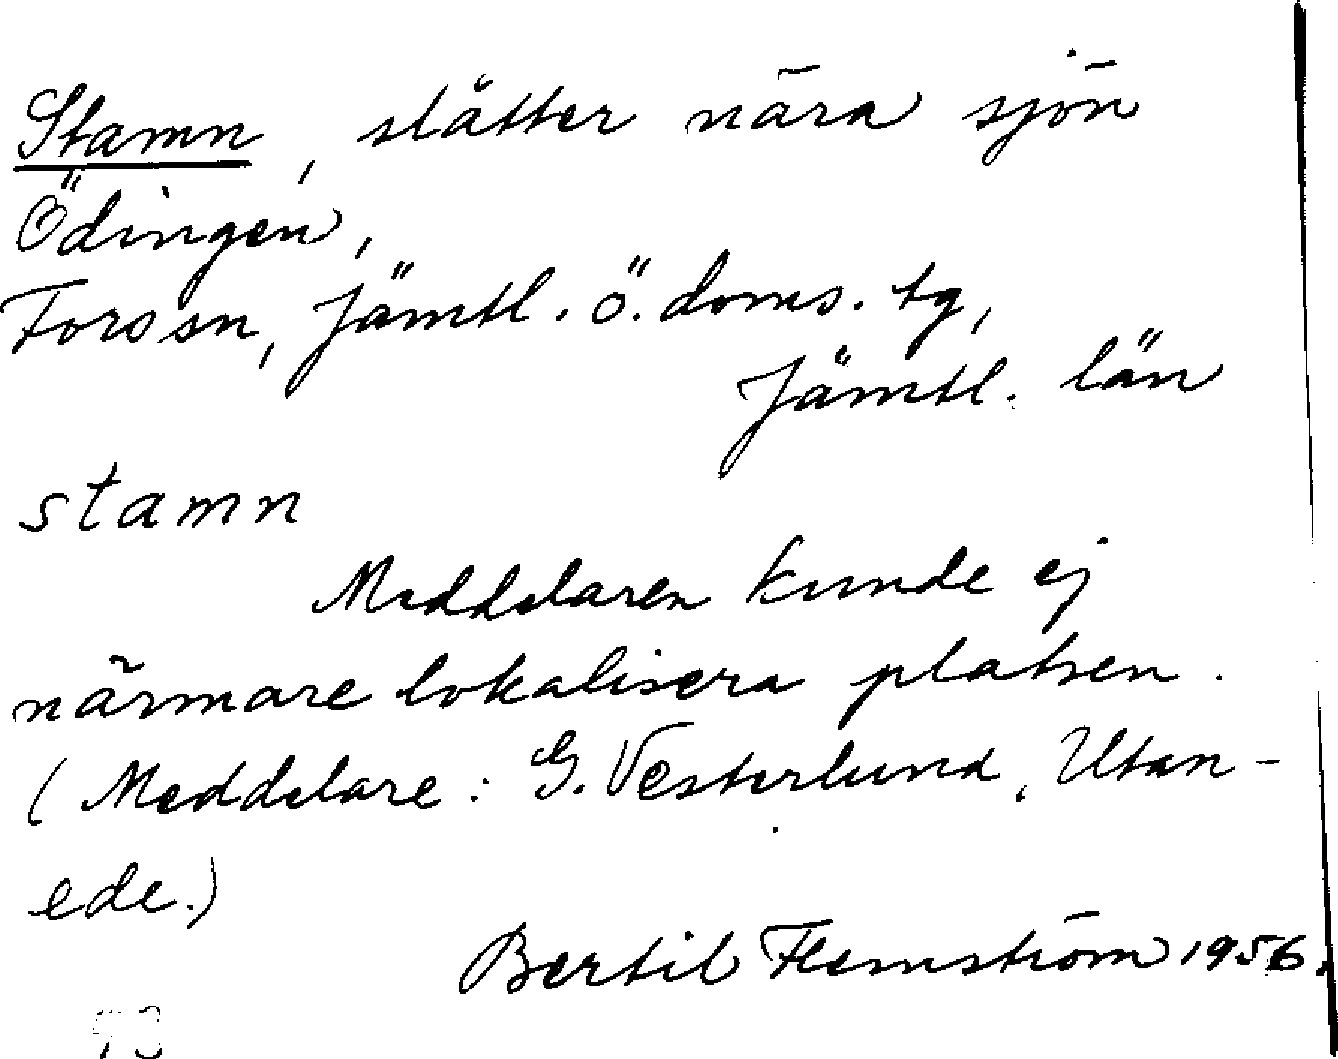 Stamn, slåtter nära sjön
Ödingen,
Fors sn, Jämtl. ö. doms. tg,
Jämtl. län
stamn
Meddelaren kunde ej
närmare lokalisera platsen.
(Meddelare: G. Vesterlund, Utan-
ede.)
Bertil Flemström 1956.